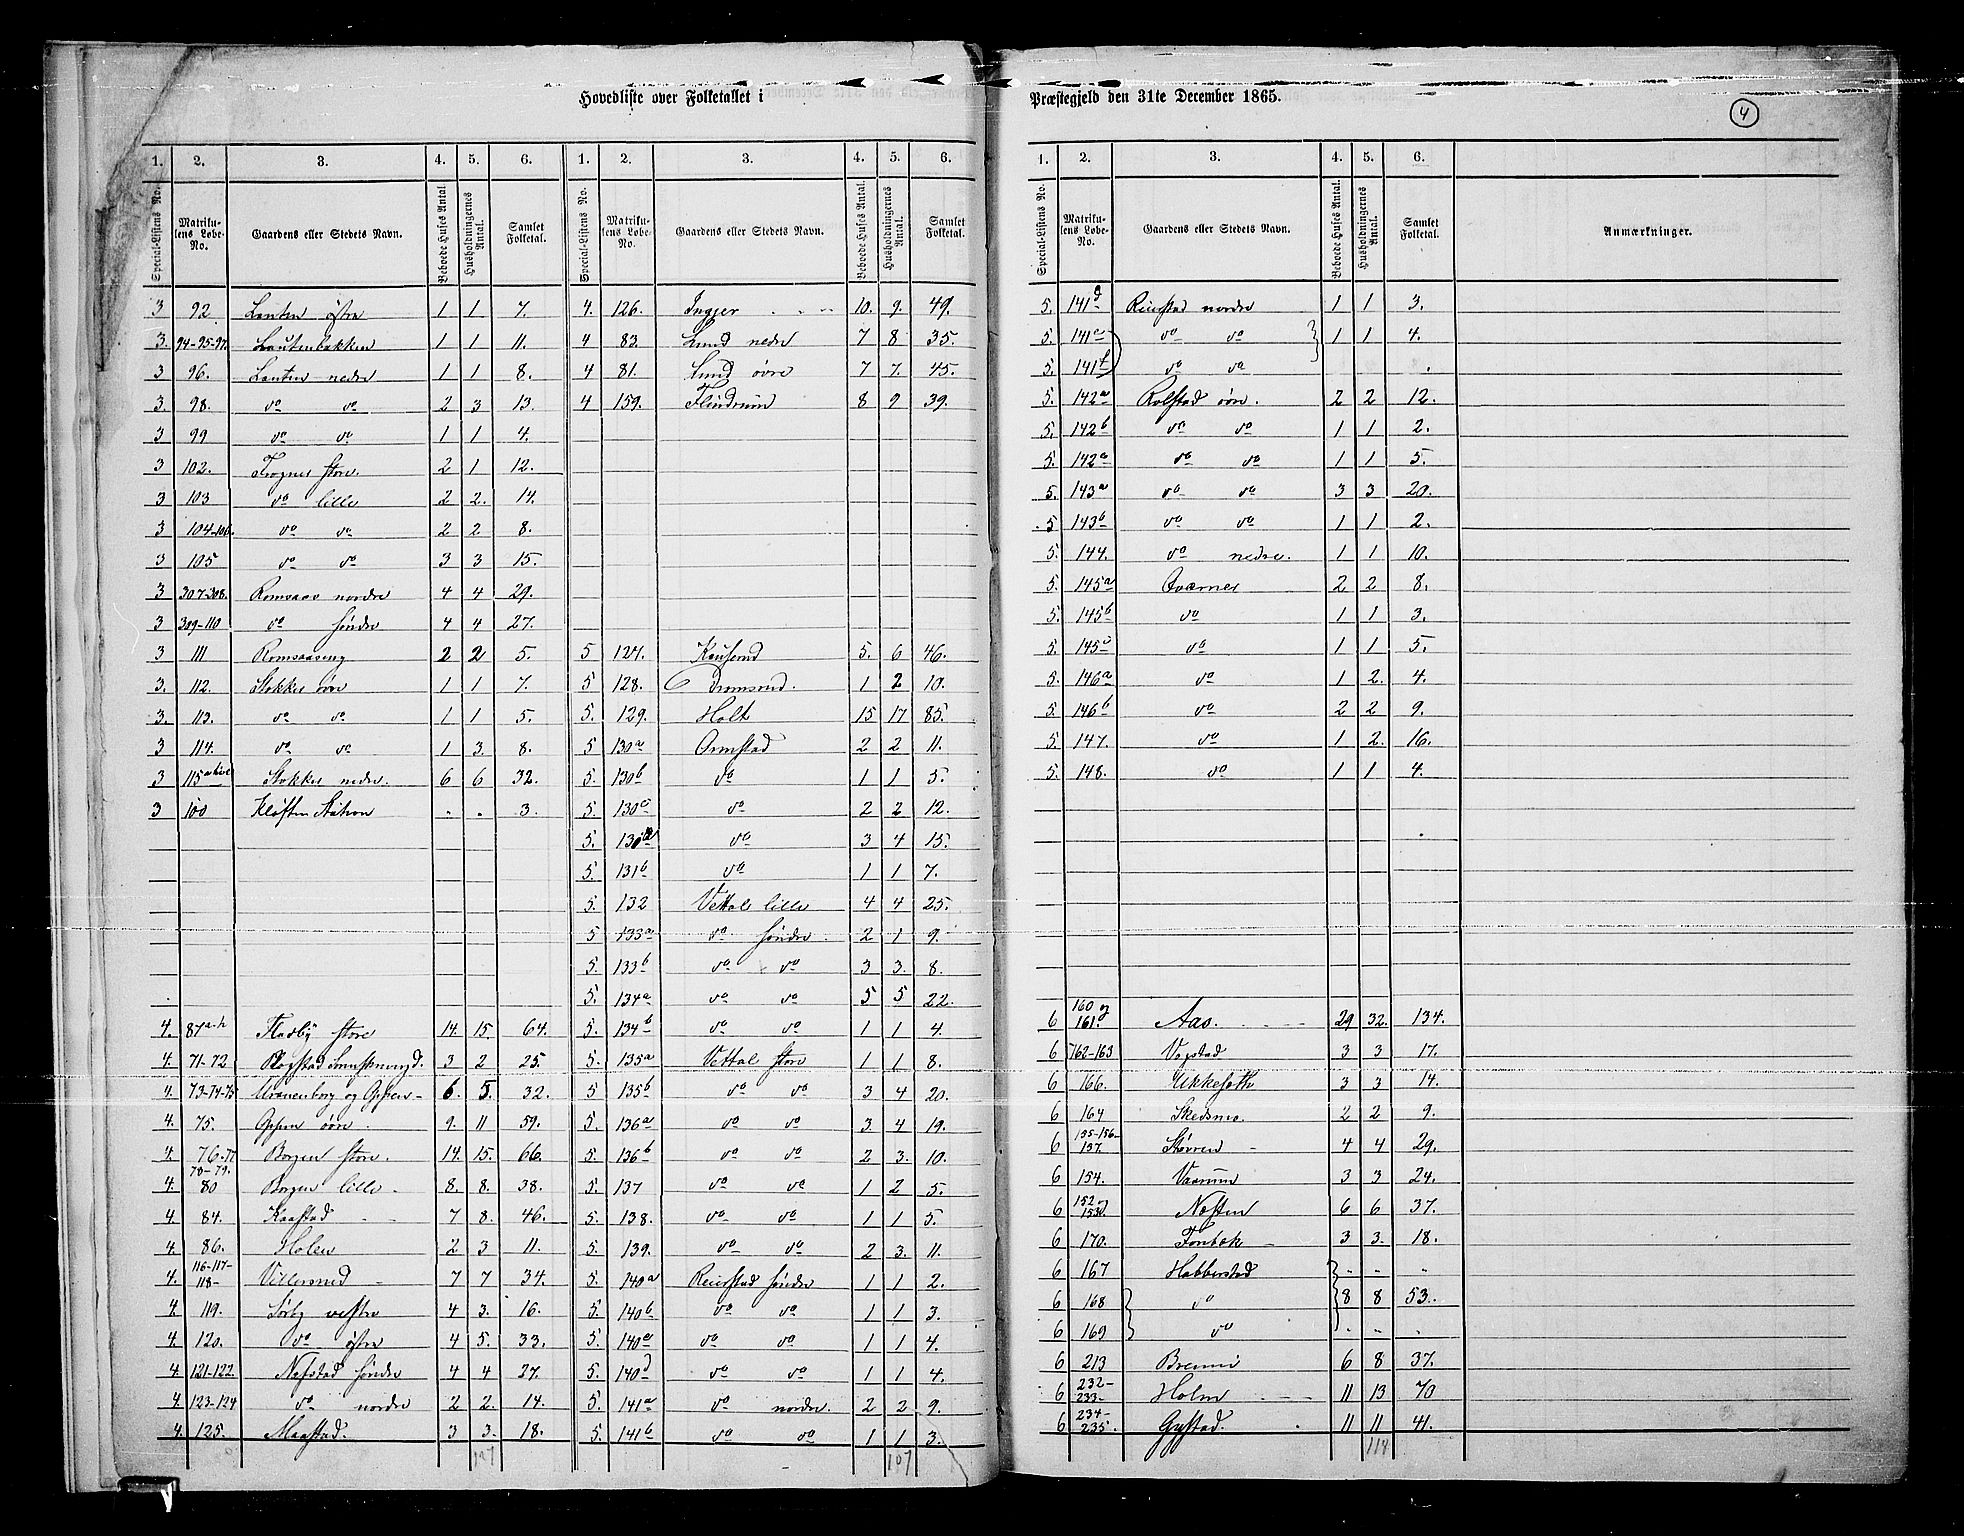 Hovedliste over Folketallet i
Præstegjeld den 31te December 1865.
4
1. 2. 3. 4. 5. 6. 1. 2. 3. 4. 5. 6.
Special-Listens No. Matrikulens Lobe-No. Gaardens eller Stedets Navn. Beboede Huses Antal. Husholdningernes Antal. Samlet Folketal. Special-Listens No. Matrikulens Lobe-No. Gaardens eller Stedets Navn. Beboede Huses Antal. Husholdningernes Antal. Samlet Folketal.
3 92 Lauten østre 1 1 7. 4. 126. Ingjer 10. 9. 49.
3. 94-95-97. Lautenbakken 1 1 11. 4 83. Lund nedre 7 8 35.
3 96. Lauten nedre 1 1 8. 4 81. Lund øvre 7 7. 45.
3. 98. do do 2 3 13. 4 159. 8 9 39.
3 99 do do 1 1 4.
3 102. Frogner store 2 1 12.
3 103 do lille 2 2. 14.
3 104-106. do do 2 2 8.
3 105 do do 3 3 15.
3 307-308. Romsaas nordre 4 4 29.
3 309-110 do søndre 4 4 27.
3 111 Romsaaseng 2 2 5. 5 127. 5. 6 46.
3. 112. Stokker øvre 1 1 7. 5 128. 1 2 10.
3. 113. do do 1 1 5. 5. 129. Holt 15 17 85.
3 114. do do 1 3. 8. 5 130a Ormstad 2 2 11.
3 115 Stokker nedre. 6 6 32. 5. 130b do 1 1 5.
3 100 Kløften Station . . 3. 5. 130c do 2 2 12.
5. do 3 4 15.
5. 131b do 1 1 7.
5. 132 Vettal lille 4 4 25.
5 133a do søndre. 2 1 9.
5. 133b do do 3 3. 8.
5. 134a do do 5 5 22.
4. 87a-h Fladby store 14. 15. 64. 5. 134b do do 1 1 4.
4. 71-72 3 2 25. 5. 135a Vettal store 1 1 8.
4. 73-74-75 og Oppen 6. 5. 32. 5 135b do do 3 4 20.
4. 75. Oppen øvre 9. 11 59. 5. 136a do do 3. 4 19.
4. 76-77 78-79. Borgen store. 14. 15. 66. 5. 136b do do 2 3. 10.
4. 80 Borgen lille 8. 8. 38. 5. 137 do do 1 2 5.
4. 84. Kaastad 7 8. 46. 5. 138. do do 1 1 5.
4. 86. Holen 2 3 11. 5. 139. do do 2 3. 11.
4. 116-117-118- 7 7 34. 5. 140a Reierstad søndre 1 1 2.
4. 119. vestre 4 3. 16. 5. 140b do do 1 1 3.
4. 120. do østre 4 5. 33. 5. do do 1 1 4.
4. 121-122. Nafstad søndre 4 4 27. 5. 140d do do 1 1 4.
4. 123-124 do nordre 2 2. 14. 5. 141a do nordre. 2 2 9.
4. 125. Maastad. 3 3. 18. 5. 141b do do 1 1 3.
127 107
1. 2. 3. 4. 5. 6.
Special-Listens No. Matrikulens Lobe-No. Gaardens eller Stedets Navn. Beboede Huses Antal. Husholdningernes Antal. Samlet Folketal. Anmærkninger.
5. 141d Reierstad nordre 1 1 3.
5. 141e do do 1 1 4.
5. 141f do do
5. 142a Rolstad øvre. 2 2 12.
5. 142b do do 1 1 2.
5. do do 1 1 5.
5. 143a do do 3 3 20.
5 143b do do 1 1 2.
5. 144. do nedre. 1 1 10.
5. 145a Qværner 2 2 8.
5. 145b do 1 1 3.
5. 145c do 1 1 5.
5. 146a do 1 2. 4.
5. 146b do 2 2 9.
5. 147. do 1 2. 16.
5. 148. do 1 1 4.
6 160 og 161. Aas. 29 32. 134.
6 162-163 Vogstad 3 3 17.
6 166. 3 3 14.
6 164 Skedsmo. 2 2 9.
6 155-156-157. 4 4 29.
6 154. 3 3 24.
6 152- 6 6 37.
6 170. Fonbæk 3 3. 18.
6 167 Habberstad
6 168 do 8 8 53.
6 169 do
6 213 6 8 37.
6 232-233- Holm 11 13 70
6 234-235. 11 11 41.
114